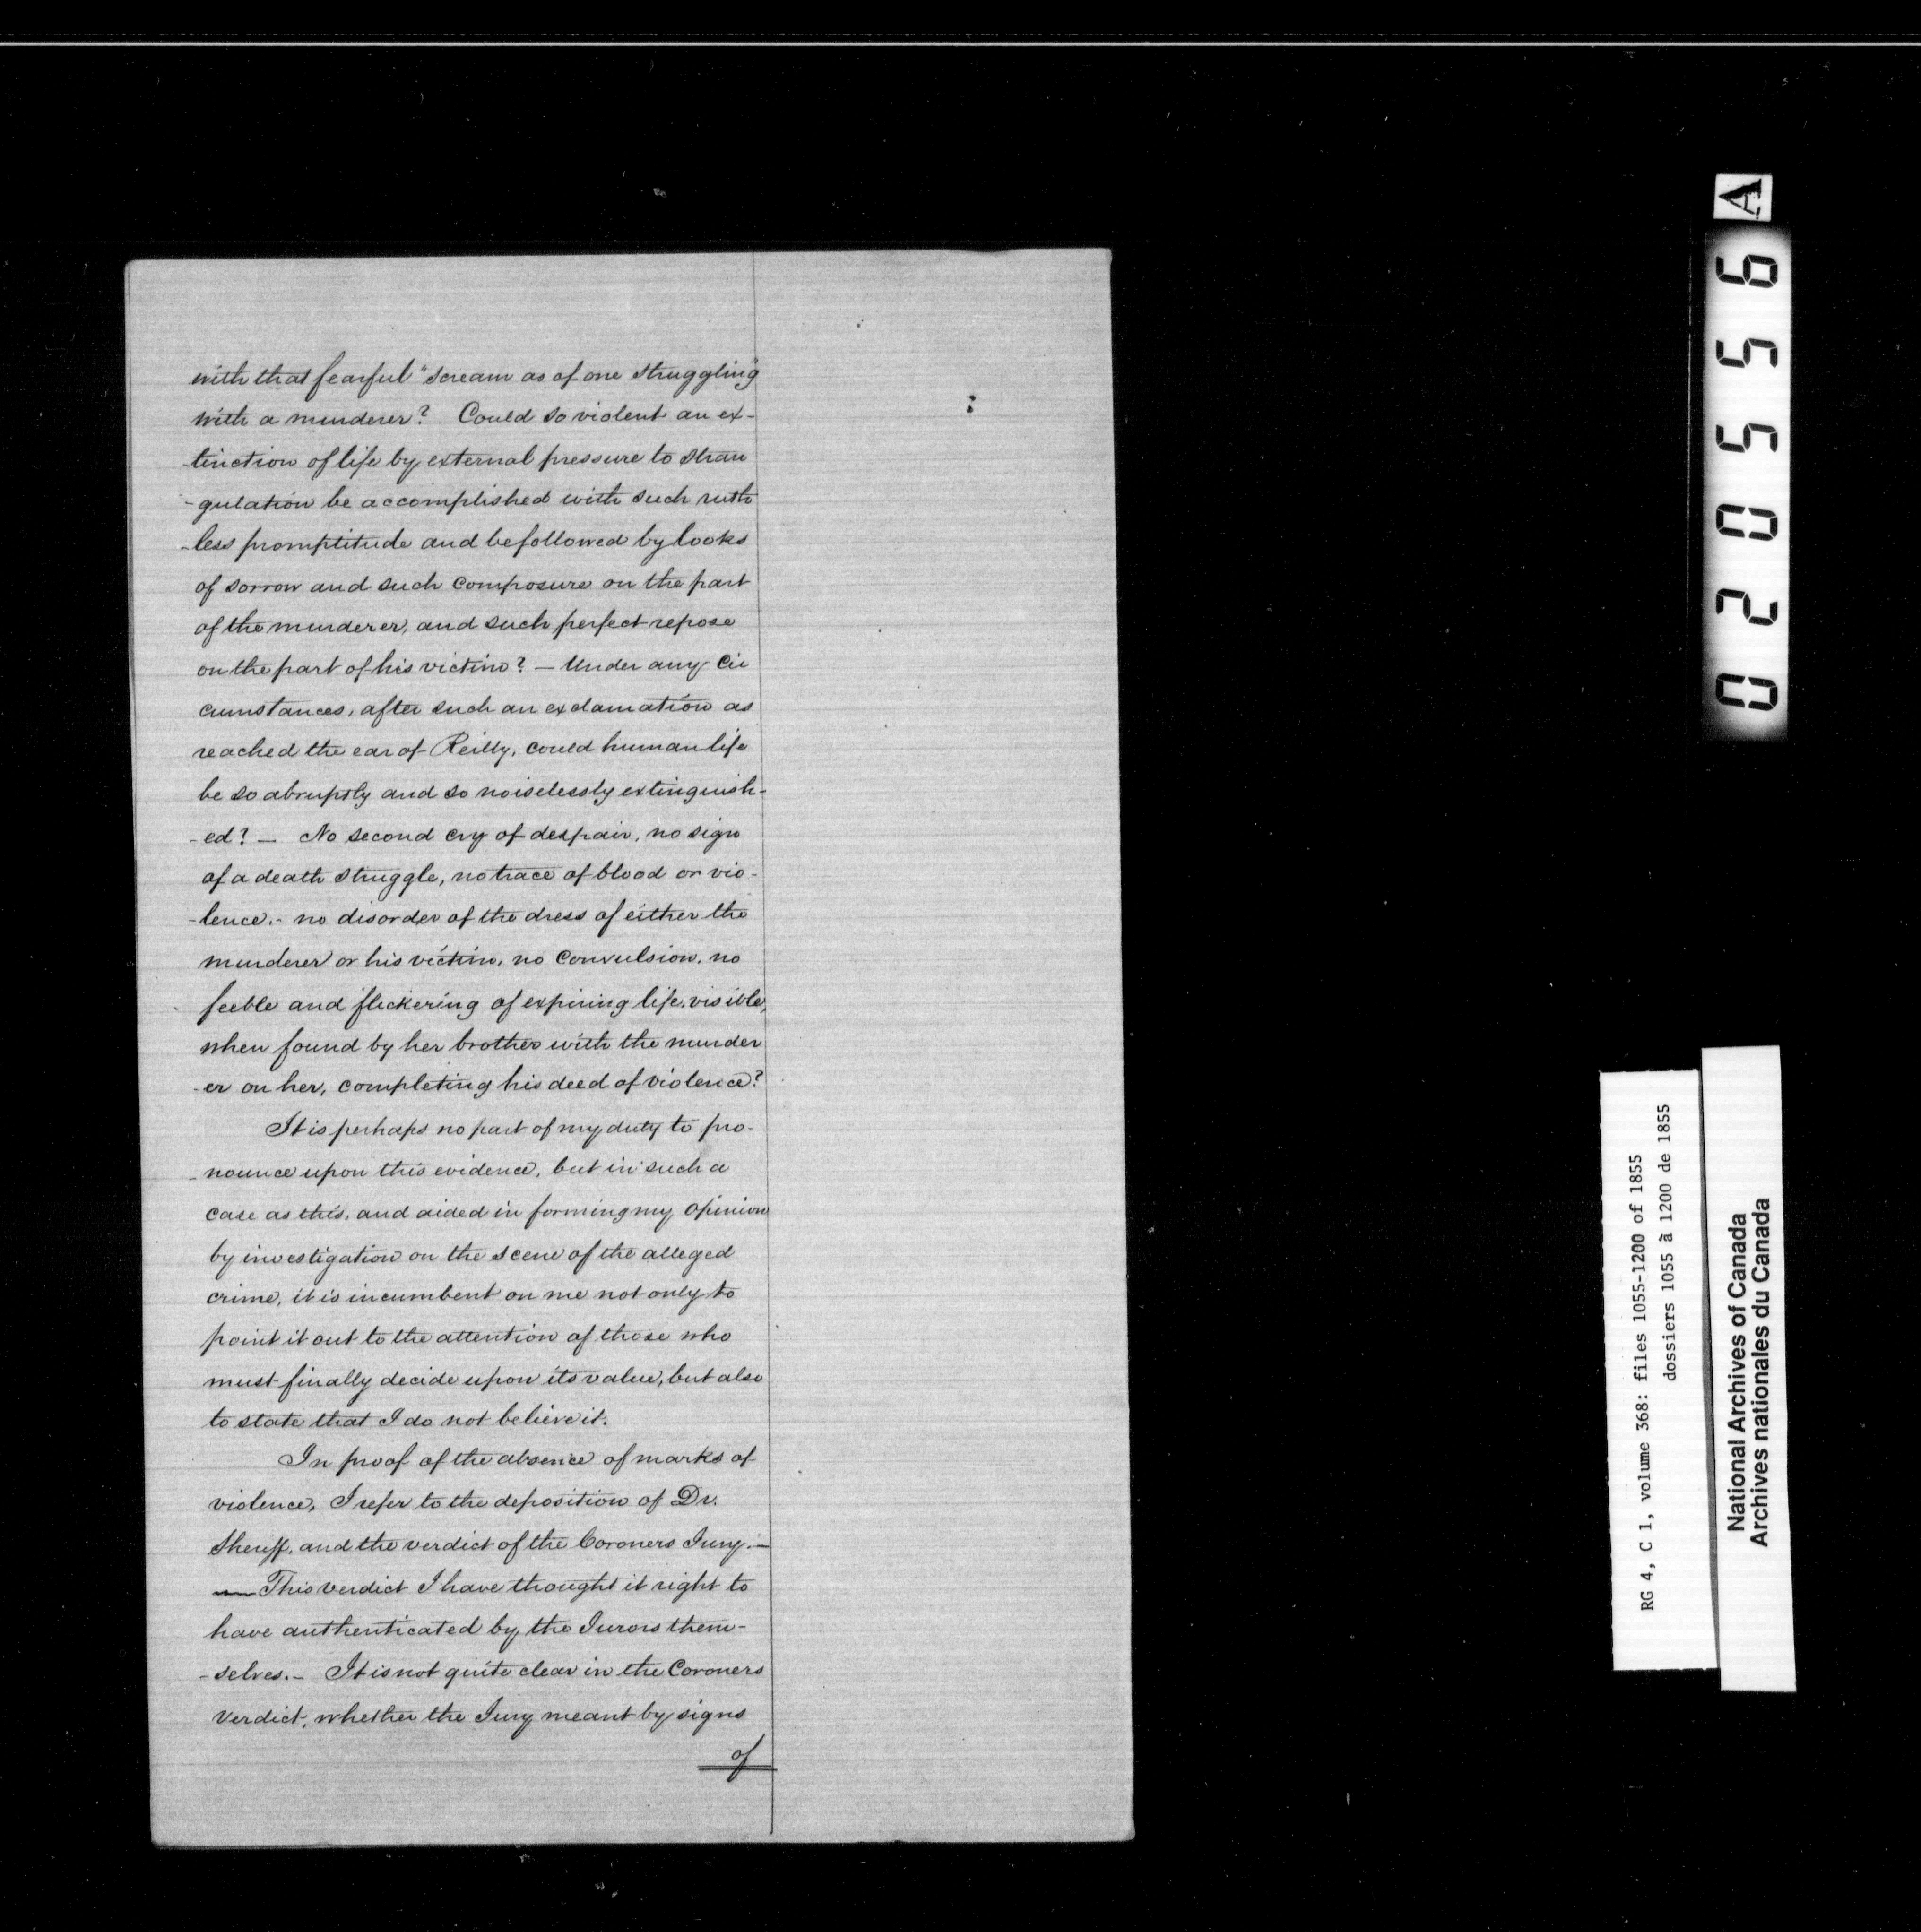 with that fearful "scream as of one struggling"
with a murderer? Could so violent an ex-
-tinction of life by external pressure to stran
-gulation be accomplished with such ruth
-less promptitude and be followed by looks
of sorrow and such composure on the part
of the murderer, and such perfect repose
on the part of his victim? — Under any cir
cumstances, after such an exclamation as
reached the ear of Reilly, could human life
be so abruptly and so noiselessly extinguish-
-ed? — No second cry of despair, no sign
of a death struggle, no trace of blood or vio-
-lence. - no disorder of the dress of either the
murderer or his victim, no convulsion, no
feeble and flickering of expiring life, visible,
when found by her brother with the murder
-er on her, completing his deed of violence?
It is perhaps no part of my duty to pro-
-nounce upon this evidence, but in such a
case as this, and aided in forming my opinion
by investigation on the scene of the alleged
crime, it is incumbent on me not only to
point it out to the attention of those who
must finally decide upon its value, but also
to state that I do not believe it.
In proof of the absence of marks of
violence, I refer to the deposition of Dr.
Sheriff, and the verdict of the Coroners Jury. —
— This verdict I have thought it right to
have authenticated by the Jurors them-
-selves. - It is not quite clear in the Coroners
Verdict, whether the Jury meant by signs
of
A
020556
RG 4, C 1, volume 368: files 1055-1200 of 1855
dossiers 1055 à 1200 de 1855
National Archives of Canada
Archives nationales du Canada